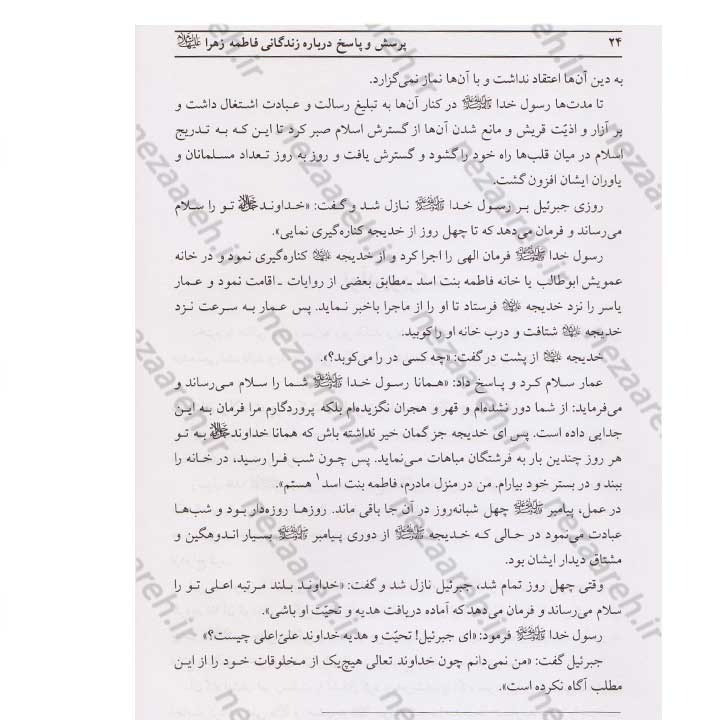 ۲۴ پرسش و پاسخ درباره زندگانی فاطمه زهرا علیهاالسلام
به دین آن‌ها اعتقاد نداشت و با آن‌ها نماز نمی‌گزارد.
تا مدت‌ها رسول خدا ﷺ در کنار آن‌ها به تبلیغ رسالت و عبادت اشتغال داشت و
بر آزار و اذیّت قریش و مانع شدن آن‌ها از گسترش اسلام صبر کرد تا این که به تدریج
اسلام در میان قلب‌ها راه خود را گشود و گسترش یافت و روز به روز تعداد مسلمانان و
یاوران ایشان افزون گشت.
روزی جبرئیل بر رسول خدا ﷺ نازل شد و گفت: «خداوند تو را سلام
می‌رساند و فرمان می‌دهد که تا چهل روز از خدیجه کناره‌گیری نمایی».
رسول خدا ﷺ فرمان الهی را اجرا کرد و از خدیجه کناره‌گیری نمود و در خانه
عمویش ابوطالب یا خانه فاطمه بنت اسد ـ مطابق بعضی از روایات ـ اقامت نمود و عمار
یاسر را نزد خدیجه فرستاد تا او را از ماجرا باخبر نماید. پس عمار به سرعت نزد
خدیجه شتافت و درب خانه او را کوبید.
خدیجه از پشت در گفت: «چه کسی در را می‌کوبد؟».
عمار سلام کرد و پاسخ داد: «همانا رسول خدا ﷺ شما را سلام می‌رساند و
می‌فرماید: از شما دور نشده‌ام و قهر و هجران نگزیده‌ام بلکه پروردگارم مرا فرمان به این
جدایی داده است. پس ای خدیجه جز گمان خیر نداشته باش که همانا خداوند به تو
هر روز چندین بار به فرشتگان مباهات می‌نماید. پس چون شب فرا رسید، در خانه را
ببند و در بستر خود بیارام. من در منزل مادرم، فاطمه بنت اسد۱ هستم».
در عمل، پیامبر ﷺ چهل شبانه‌روز در آن جا باقی ماند. روزها روزه‌دار بود و شب‌ها
عبادت می‌نمود در حالی که خدیجه از دوری پیامبر ﷺ بسیار اندوهگین و
مشتاق دیدار ایشان بود.
وقتی چهل روز تمام شد، جبرئیل نازل شد و گفت: «خداوند بلند مرتبه اعلی تو را
سلام می‌رساند و فرمان می‌دهد که آماده دریافت هدیه و تحیّت او باشی».
رسول خدا ﷺ فرمود: «ای جبرئیل! تحیّت و هدیه خداوند علیّ اعلی چیست؟»
جبرئیل گفت: «من نمی‌دانم چون خداوند تعالی هیچ‌یک از مخلوقات خود را از این
مطلب آگاه نکرده است».
nezaareh.ir